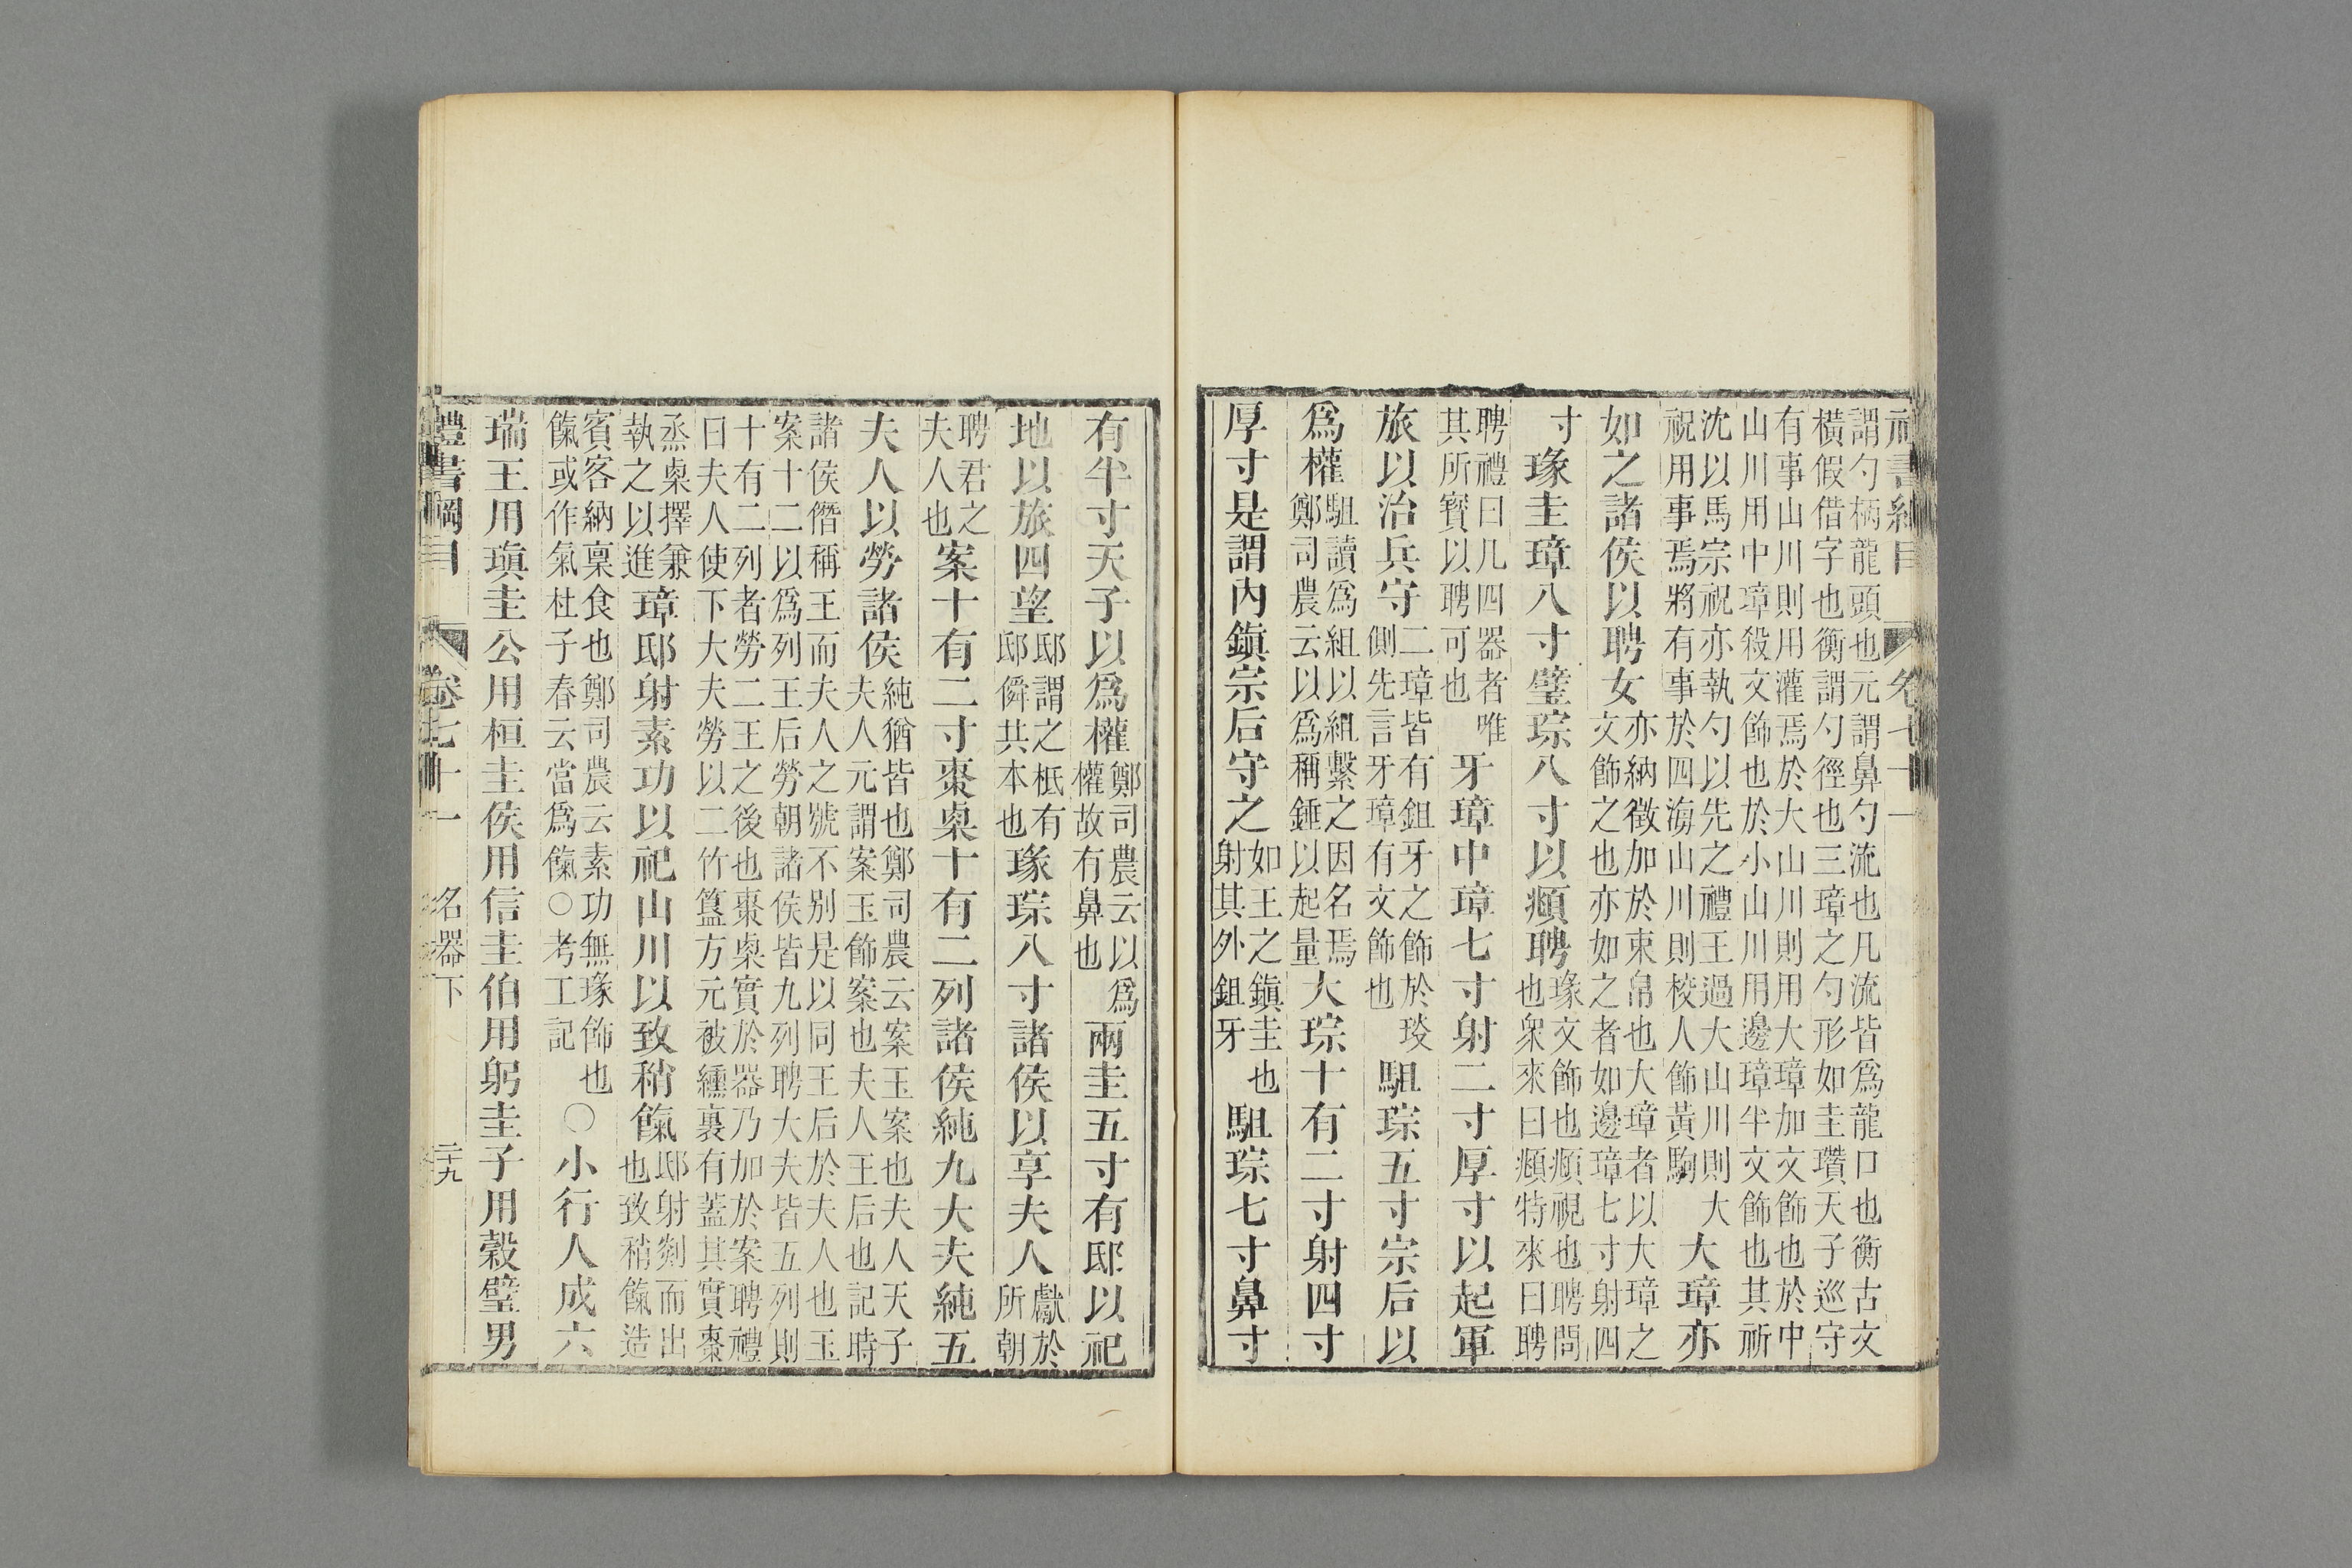 書綱目　卷七十一
謂勺柄龍頭也元謂鼻勺流也凡流皆爲龍口也衡古文
橫假借字也衡謂勺徑也三璋之勺形如圭瓚天子巡守
有事山川則用灌焉於大山川則用大璋加文飾也於中
山川用中璋殺文飾也於小山川用邊璋半文飾也其祈
沈以馬宗祝亦執勺以先之禮王過大山川則大
祝用事焉將有事於四海山川則校人飾黃駒　大璋亦
如之諸侯以聘女亦納徵加於束帛也大璋者以大璋之文飾之也亦如之者如邊璋七寸射四
寸　瑑圭璋八寸璧琮八寸以頫聘瑑文飾也頫視也聘問也衆來曰頫特來曰聘
聘禮曰凡四器者唯其所寳以聘可也　牙璋中璋七寸射二寸厚寸以起軍
旅以治兵守二璋皆有鉏牙之飾於琰側先言牙璋有文飾也　駔琮五寸宗后以
爲權駔讀爲組以組繫之因名焉鄭司農云以爲稱錘以起量　大琮十有二寸射四寸
厚寸是謂內鎭宗后守之如王之鎭圭也射其外鉏牙　駔琮七寸鼻寸
有半寸天子以爲權鄭司農云以爲權故有鼻也　兩圭五寸有邸以祀
地以旅四望邸謂之柢有邸僢共本也　瑑琮八寸諸侯以享夫人獻於所朝
聘君之夫人也　案十有二寸棗㮚十有二列諸侯純九大夫純五
夫人以勞諸侯純猶皆也鄭司農云案玉案也夫人天子夫人元謂案玉飾案也夫人王后也記時
諸侯僭稱王而夫人之號不別是以同王后於夫人也玉
案十二以爲列王后勞朝諸侯皆九列聘大夫皆五列則
十有二列者勞二王之後也棗㮚實於器乃加於案聘禮
曰夫人使下大夫勞以二竹簋方元被纁裏有蓋其實棗
烝㮚擇兼執之以進　璋邸射素功以祀山川以致稍餼邸射剡而出也致稍餼造
賓客納稟食也鄭司農云素功無瑑飾也餼或作氣杜子春云當爲餼○考工記　○小行人成六
瑞王用瑱圭公用桓圭侯用信圭伯用躬圭子用穀璧男
禮書綱目　卷七十一　名器下　二十九